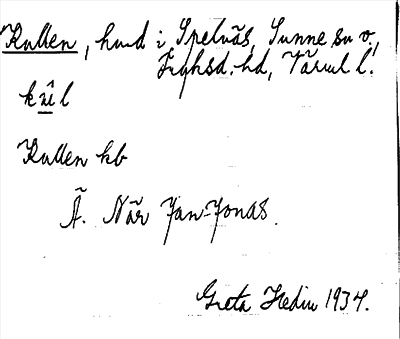 Kullen, hmd i Spelnäs, Sunne sn o.,
Fryksd. hd, Värml l.
Kullen kb
Ä. När Jan-Jonas.
Greta Hedin 1934.